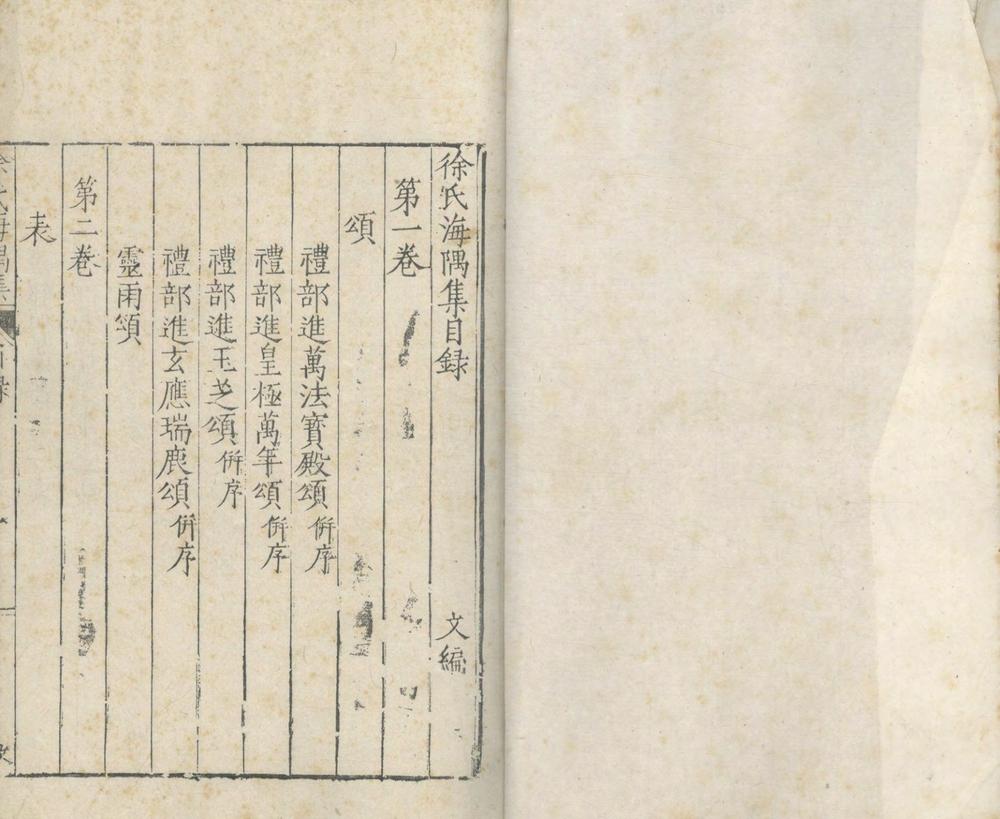 徐氏海隅集目録 文編
第一卷
頌
禮部進萬法寶殿頌 併序
禮部進皇極萬年頌 併序
禮部進玉芝頌 併序
禮部進玄應瑞鹿頌 併序
靈雨頌
第二卷
表